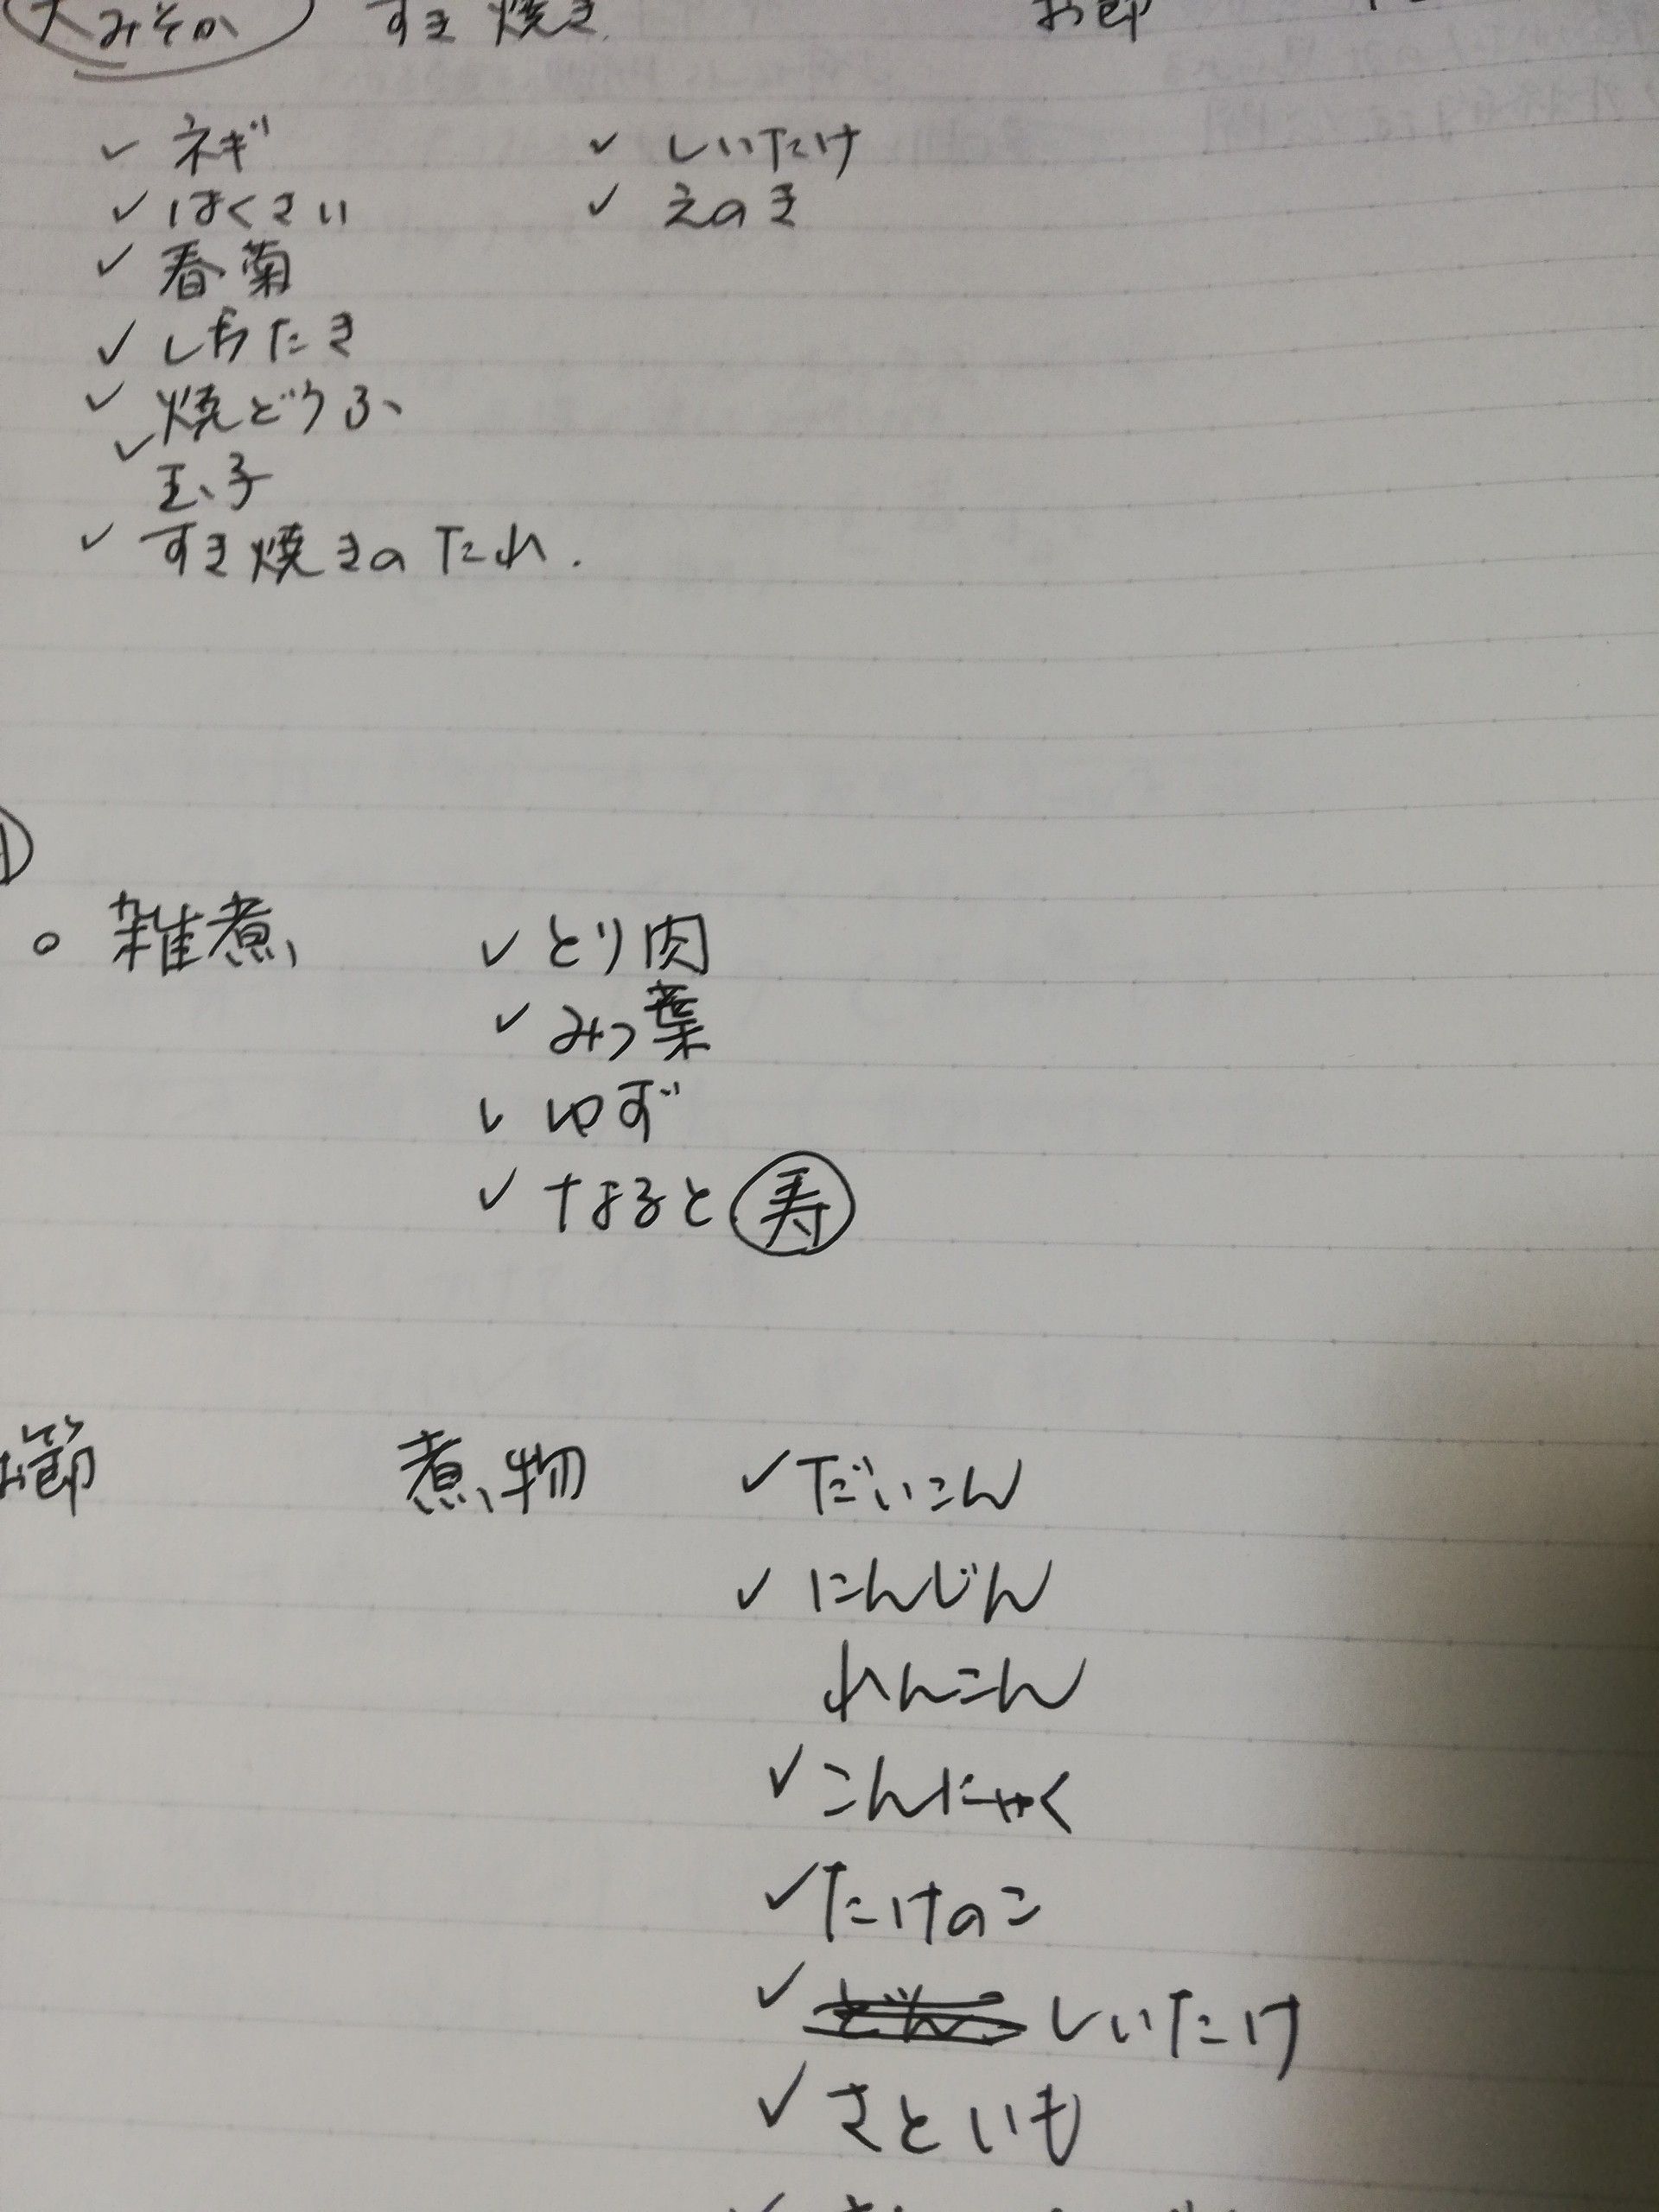 大みそか すき焼き お節
✓ ネギ ✓ しいたけ
✓ はくさい ✓ えのき
✓ 春菊
✓ しらたき
✓ 焼どうふ
✓ 玉子
✓ すき焼きのたれ.
○ 雑煮 ✓ とり肉
✓ みつ葉
✓ ゆず
✓ なると 寿
お節 煮物 ✓ だいこん
✓ にんじん
れんこん
✓ こんにゃく
✓ たけのこ
✓ しいたけ
✓ さといも